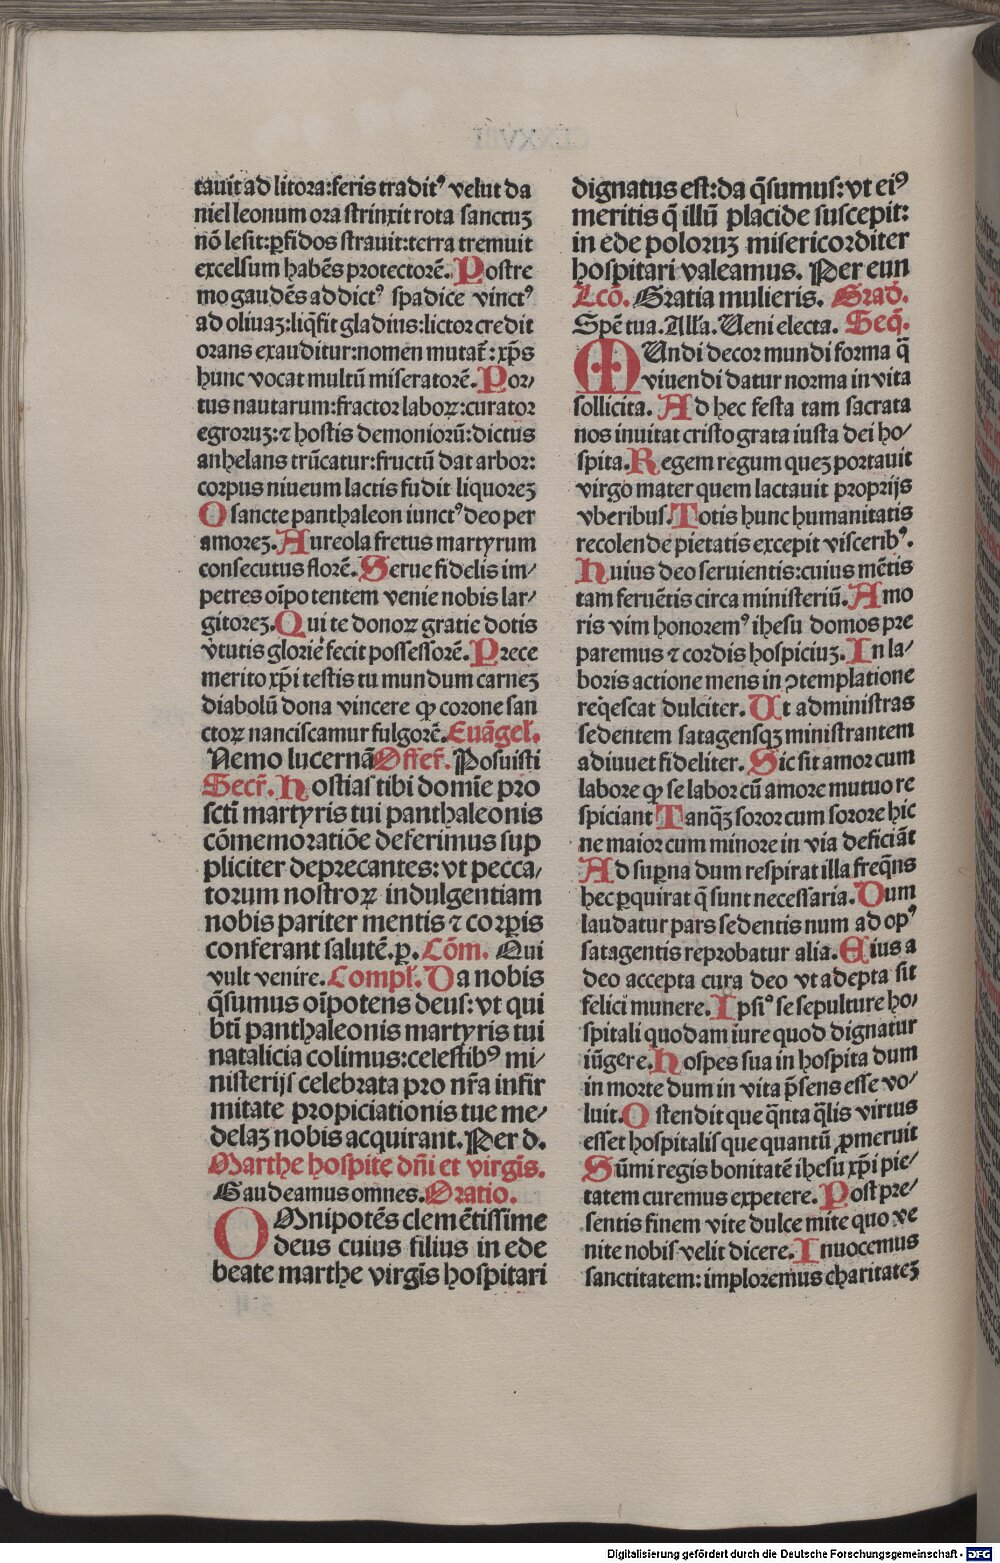 tauit ad litora:feris traditꝰ velut da
niel leonum ora strinxit rota sanctuꝫ
nō lesit:ꝑfidos strauit:terra tremuit
excelsum habēs protectorē. Postre
mo gaudēs addictꝰ spadice vinctꝰ
ad oliuaꝫ:liq̄fit gladius:lictor credit
orans exauditur:nomen mutat̄:xp̄s
hunc vocat multū miseratorē. Por⸗
tus nautarum:fractor laboꝝ:curator
egroruꝫ:⁊ hostis demoniorū:dictus
anhelans trūcatur:fructū dat arbor:
corpus niueum lactis fudit liquoreꝫ
O sancte panthaleon iunctꝰ deo per
amoreꝫ. Aureola fretus martyrum
consecutus florē. Serue fidelis im⸗
petres oīpotentem venie nobis lar⸗
gitoreꝫ. Qui te donoꝝ gratie dotis
v̄tutis glorie fecit possessorē. Prece
merito xp̄i testis tu mundum carneꝫ
diabolū dona vincere ꝙ corone san
ctoꝝ nanciscamur fulgorē. Euāgel̄.
Nemo lucernā Offer̄. Posuisti
Secr̄. Hostias tibi domīe pro
scti martyris tui panthaleonis
cōmemoratiōe deferimus sup
pliciter deprecantes: vt pecca⸗
torum nostroꝝ indulgentiam
nobis pariter mentis ⁊ corꝑis
conferant salutē.ꝑ. Cōm. Qui
vult venire. Compl̄. Da nobis
q̄sumus oīpotens deus: vt qui
btī panthaleonis martyris tui
natalicia colimus:celestibꝰ mi⸗
nisterijs celebrata pro nr̄a infir
mitate propiciationis tue me⸗
delaꝫ nobis acquirant. Per d.
Marthe hospite dn̄i et virgīs.
Gaudeamus omnes. Oratio.
OMnipotēs clemētissime
deus cuius filius in ede
beate marthe virgīs hospitari
dignatus est:da q̄sumus: vt eiꝰ
meritis q̄ illū placide suscepit:
in ede poloruꝫ misericorditer
hospitari valeamus. Per eun
Lcō. Gratia mulieris. Grad̄.
Spē tua. All̄a. Veni electa. Seq̄.
MUndi decor mundi forma q̄
viuendi datur norma in vita
sollicita. Ad hec festa tam sacrata
nos inuitat cristo grata iusta dei ho⸗
spita. Regem regum queꝫ portauit
virgo mater quem lactauit proprijs
vberibus. Totis hunc humanitatis
recolende pietatis excepit visceribꝰ.
Huius deo seruientis:cuius mētis
tam feruētis circa ministeriū. Amo
ris vim honoremꝰ ihesu domos pre
paremus ⁊ cordis hospiciuꝫ. In la⸗
boris actione mens in ꝯtemplatione
req̄escat dulciter. Ut administras
sedentem satagensqꝫ ministrantem
adiuuet fideliter. Sic sit amor cum
labore ꝙ se labor cū amore mutuo re
spiciant Tanqꝫ soror cum sorore hic
ne maior cum minore in via deficiāt
Ad suꝑna dum respirat illa freq̄ns
hec ꝑquirat q̄ sunt necessaria. Dum
laudatur pars sedentis num ad opꝰ
satagentis reprobatur alia. Eius a
deo accepta cura deo vt adepta sit
felici munere. Ipsiꝰ se sepulture ho⸗
spitali quodam iure quod dignatur
iūgere. Hospes sua in hospita dum
in morte dum in vita p̄sens esse vo⸗
luit. Ostendit que q̄nta q̄lis virtus
esset hospitalis que quantū ꝓmeruit
Sūmi regis bonitatē ihesu xp̄i pie⸗
tatem curemus expetere. Post pre⸗
sentis finem vite dulce mite quo ve
nite nobis velit dicere. Inuocemus
sanctitatem: imploremus charitateꝫ
Digitalisierung gefördert durch die Deutsche Forschungsgemeinschaft - DFG